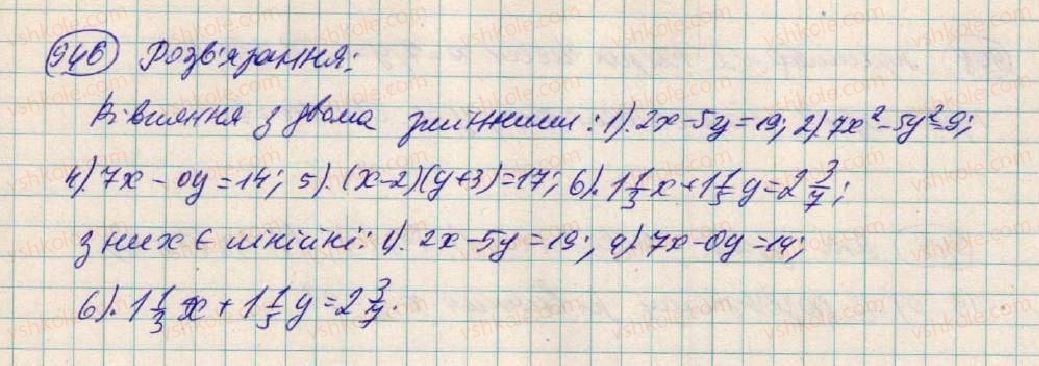 946 Розв'язання:
Рівняння з двома змінними: 1). 2x-5y=19; 2) 7x²-5y²=9;
4). 7x-0y=14; 5). (x-2)(y+3)=17; 6). 1 1/3 x + 1 1/5 y = 2 3/7;
з них є лінійні: 1). 2x-5y=19; 4). 7x-0y=14;
6). 1 1/3 x + 1 1/5 y = 2 3/7.